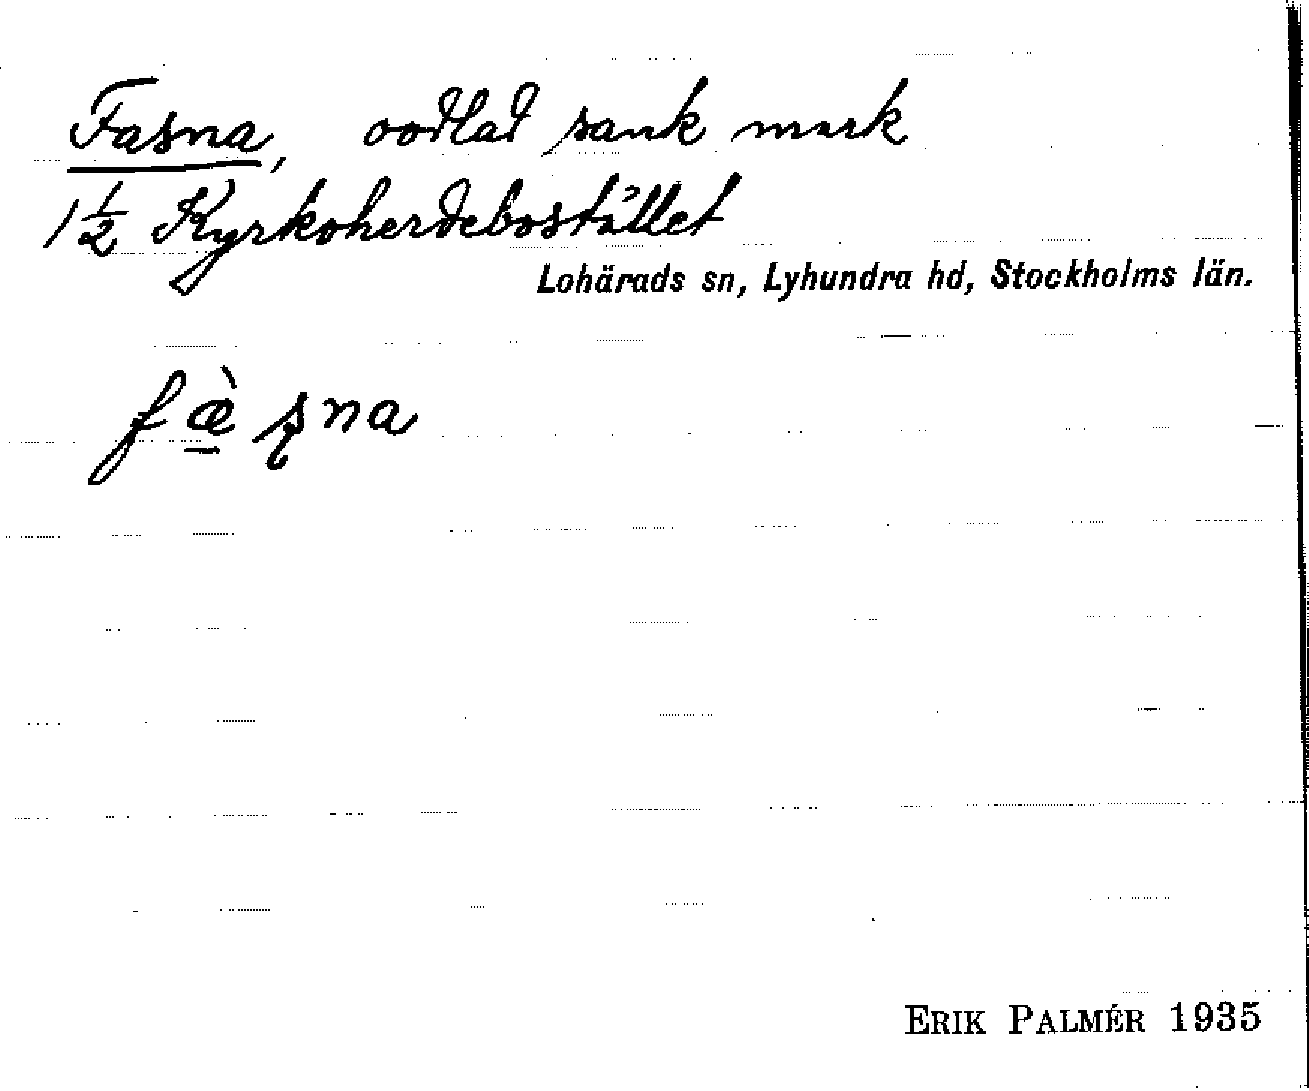 Fasna, oodlad sank mark
1½ Kyrkoherdebostället
Lohärads sn, Lyhundra hd, Stockholms län.
ERIK PALMÉR 1935